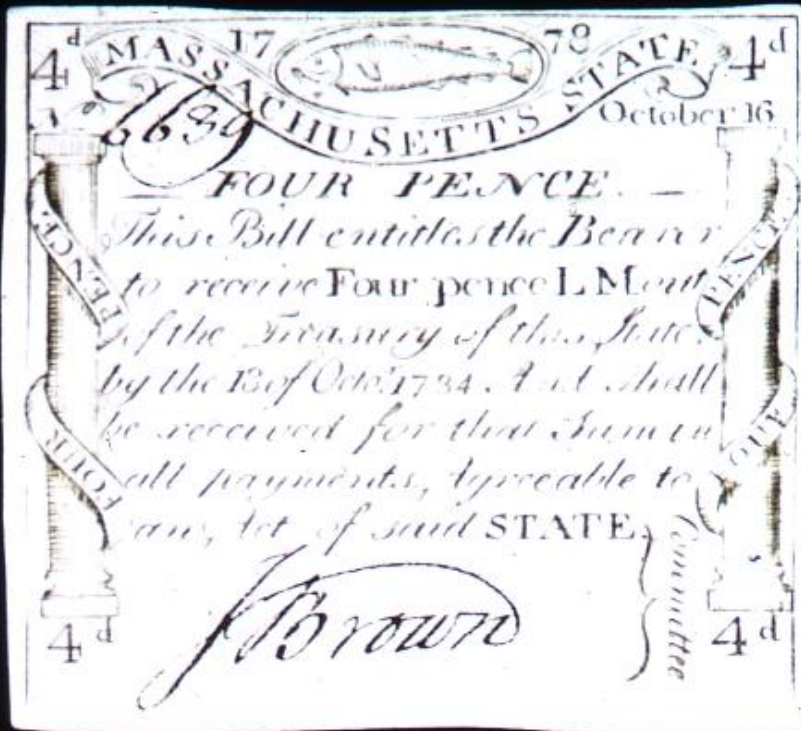 4d 17 78 4d
MASSACHUSETTS STATE
No 2639 October 16
FOUR PENCE
This Bill entitles the Bearer
to receive Four pence L M out
of the Treasury of this State.
by the 18 of Octo. 1784 And shall
be received for that Sum in
all payments, Agreeable to
an, Act of said STATE.
PENCE
FOUR
PENCE
FOUR
Committee
J Brown
4d 4d